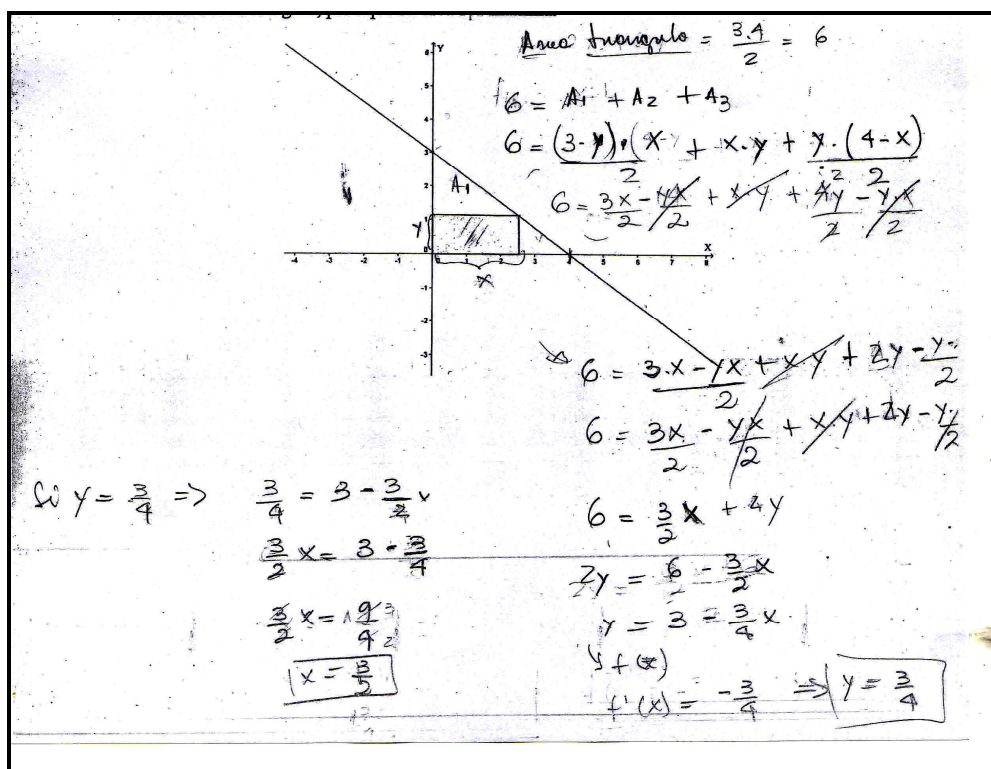 Area triangulo = 3.4/2 = 6
6 = A1 + A2 + A3
6 = (3-y).(x/2 + x.y + y.(4-x)/2
6 = 3x/2 - yx/2 + x.y + 4y/2 - y.x/2
Y
6
5
4
3
2
1
0
-1
-2
-3
A1
y
x
X
-4 -3 -2 -1 0 1 2 3 4 5 6 7 8
6 = 3.x - yx/2 + x y + 2y - y./2
6 = 3x/2 - yx/2 + x.y + 2y - y./2
6 = 3/2 x + 2y
2y = 6 - 3/2 x
y = 3 - 3/4 x
y f(x)
f'(x) = -3/4 => y = 3/4
Si y = 3/4 => 3/4 = 3 - 3/2 x
3/2 x = 3 - 3/4
3/2 x = 9/4
x = 3/2